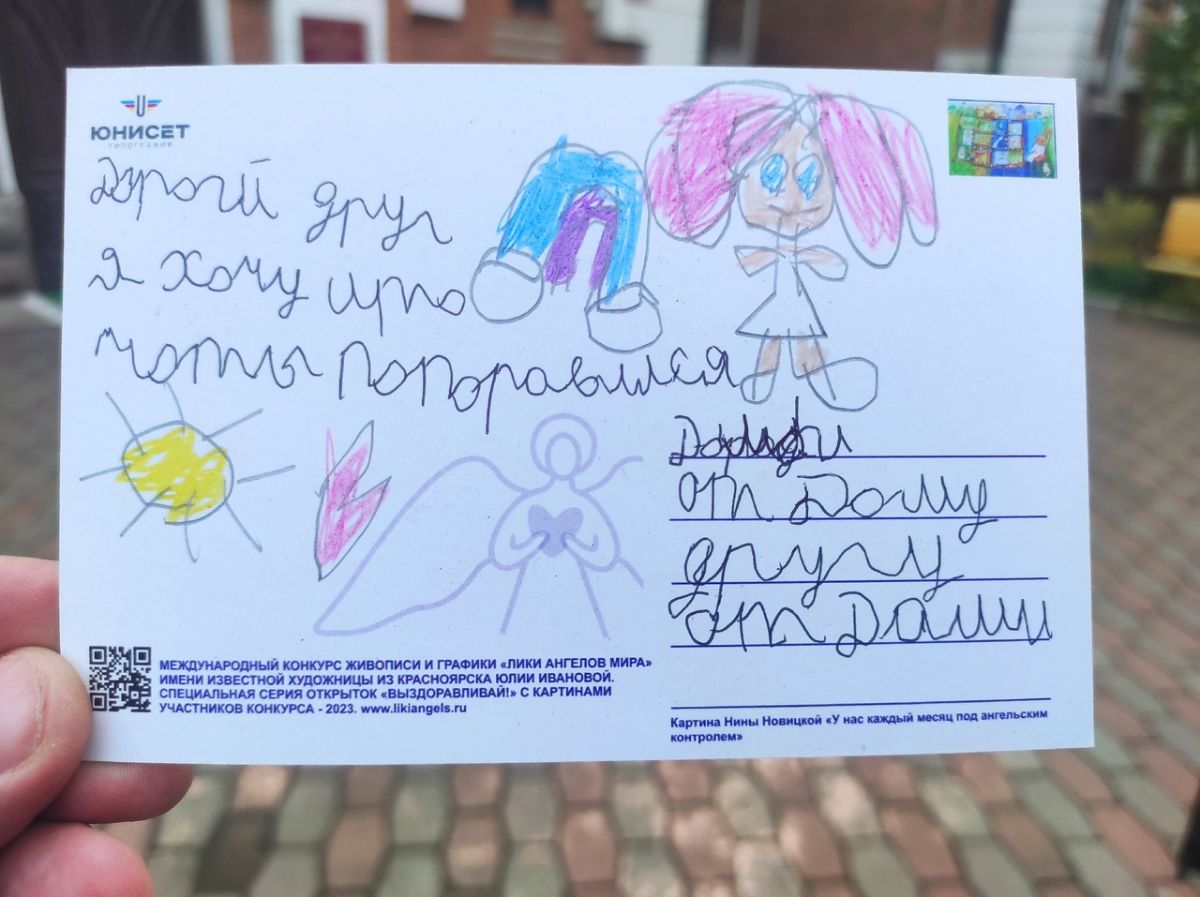 ЮНИСЕТ
ТИПОГРАФИЯ
Дорогй друг
я хочу
чоты попоравился
от Дому
другу
от Даши
МЕЖДУНАРОДНЫЙ КОНКУРС ЖИВОПИСИ И ГРАФИКИ «ЛИКИ АНГЕЛОВ МИРА»
ИМЕНИ ИЗВЕСТНОЙ ХУДОЖНИЦЫ ИЗ КРАСНОЯРСКА ЮЛИИ ИВАНОВОЙ.
СПЕЦИАЛЬНАЯ СЕРИЯ ОТКРЫТОК «ВЫЗДОРАВЛИВАЙ!» С КАРТИНАМИ
УЧАСТНИКОВ КОНКУРСА - 2023. www.likiangels.ru
Картина Нины Новицкой «У нас каждый месяц под ангельским
контролем»